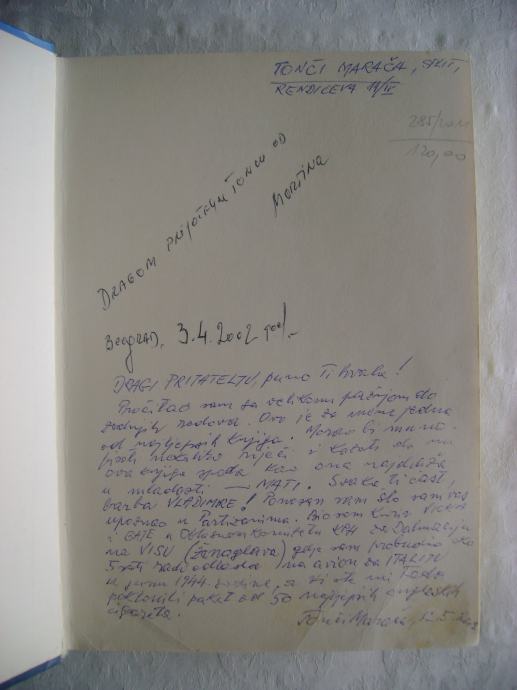 TONČI MARAČA, SPLIT,
RENDIĆEVA 11/IV
120,00
DRAGOM PRIJATELJU TONČIJU OD
MARTINA
BEOGRAD, 3.4.2002 god.
DRAGI PRIJATELJU, puno Ti hvala!
Pročitao sam sa velikom pažnjom do
zadnjih redova. Ovo je za mene jedna
od najljepših knjiga. Morao bi mnogo
pisati nekoliko riječi i kazati da mi
ova knjiga spada kao ona najdraža
u mladosti — MATI. Svaka ti čast,
barba VLADIMIRE! Ponosan sam što sam vas
upoznao u Partizanima. Bio sam kurir VICKA
i BATE u Oblasnom komitetu KPH za Dalmaciju
na VISU (Ženaglava) gdje sam probudio oko
5 sati radi odlaska na avion za ITALIJU
u junu 1944. godine, a vi ste mi tada
poklonili paket od 50 najljepših engleskih
cigareta.
Tonči Marača, 5.2002